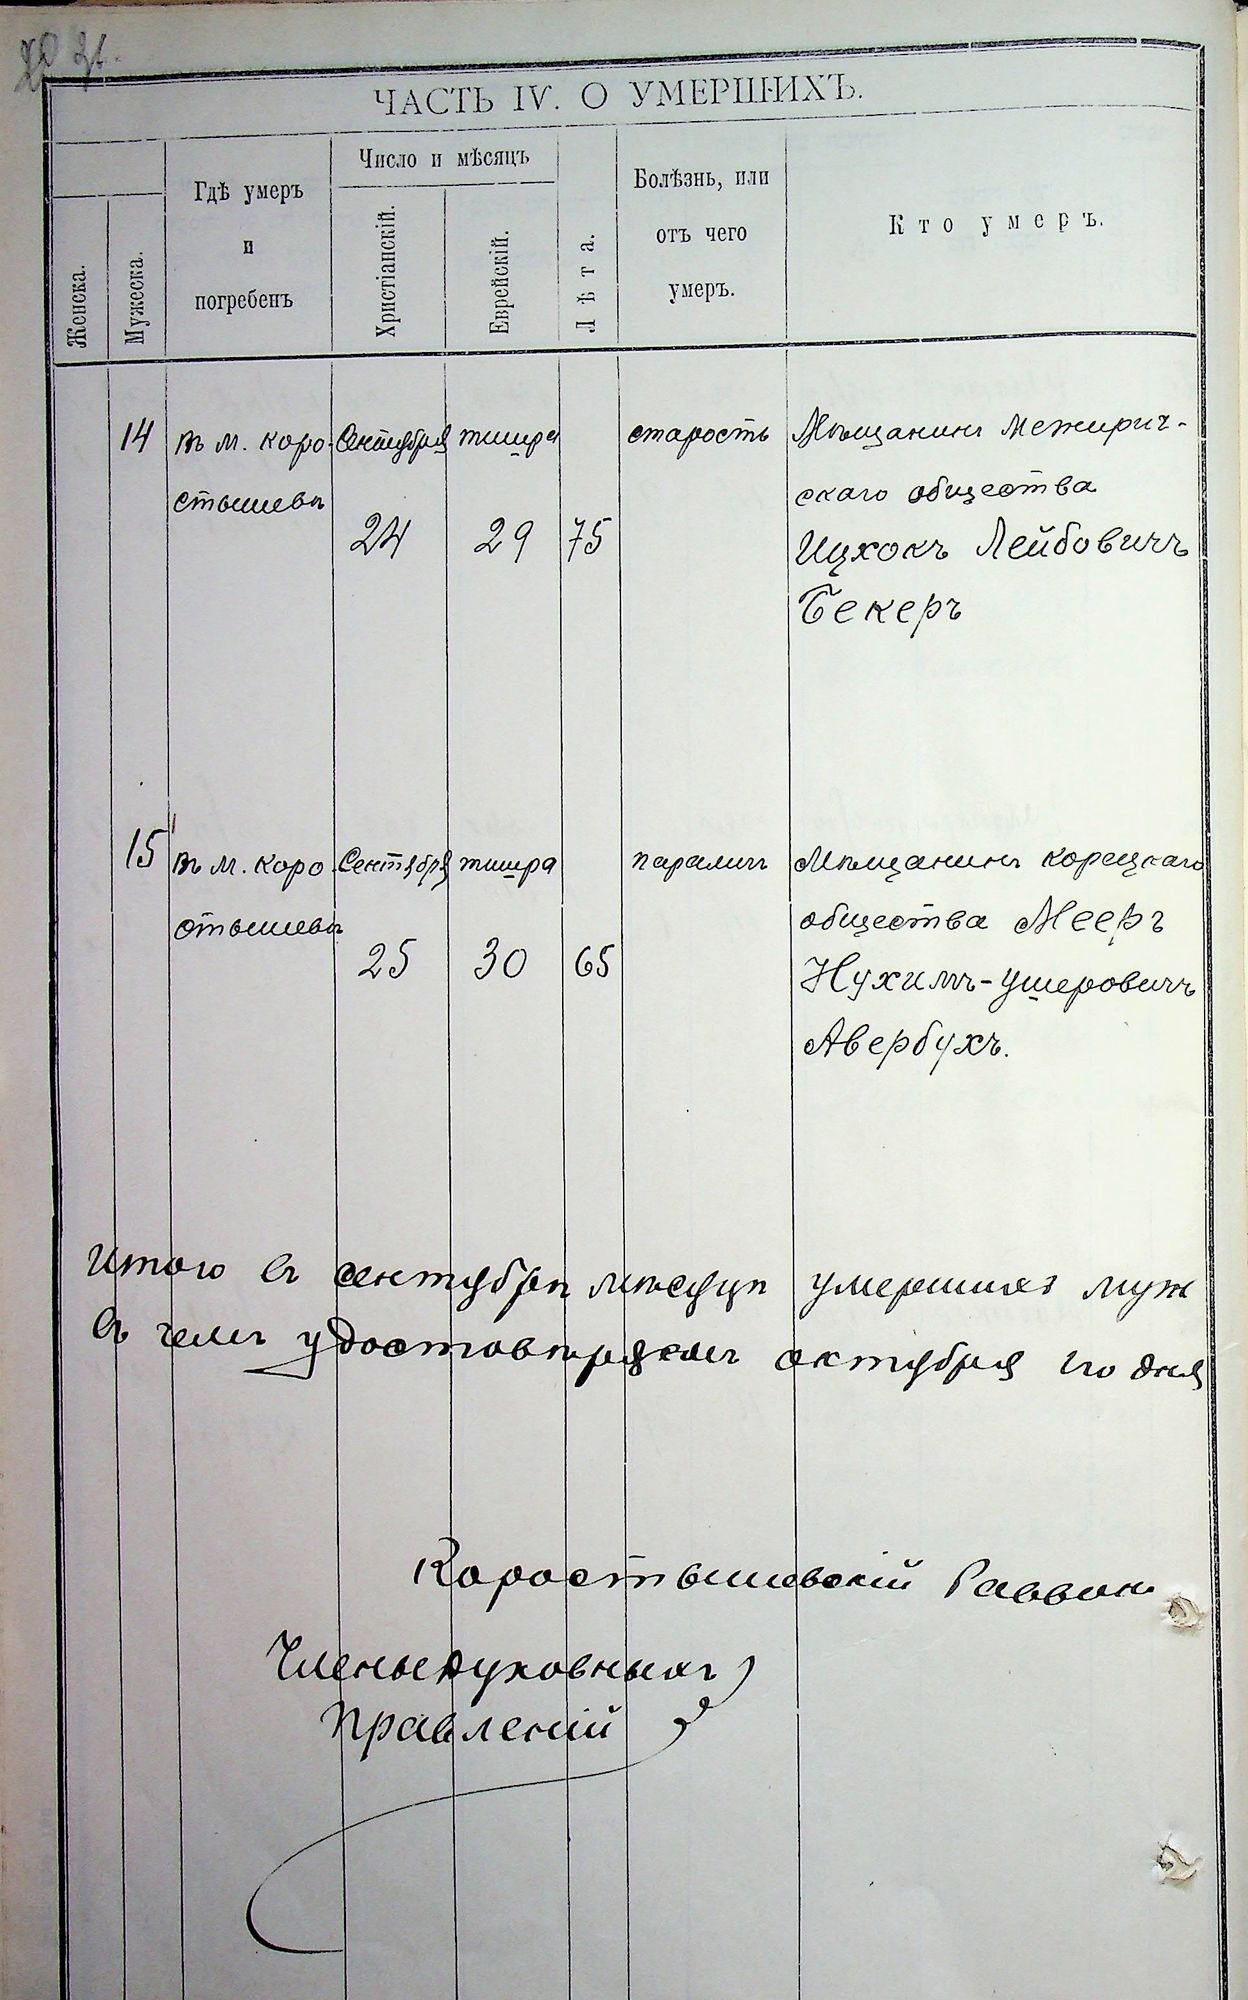 ЧАСТЬ IV. О УМЕРШИХЪ.
Женска.
Мужеска.
Гдѣ умеръ
и
погребенъ
Число и мѣсяцъ
Христіанскій.
Еврейскій.
Лѣта.
Болѣзнь, или
отъ чего
умеръ.
Кто умеръ.
14 въ м. Коро- Сентября тишра старость Мѣщанинъ Межирич-
стышевѣ скаго общества
24 29 75 Ицхокъ Лейбовичъ
Бекеръ
15 въ м. Коро- Сентября тишра параличъ Мѣщанинъ Корецкаго
стышевѣ общества Мееръ
25 30 65 Нухимъ-Ушеровичъ
Авербухъ.
Итого въ сентябрѣ мѣсяцѣ умершихъ муж
въ чемъ удостовѣряемъ октября 1го дня
Коростышевскій Раввинъ
Члены духовныхъ
Правленій